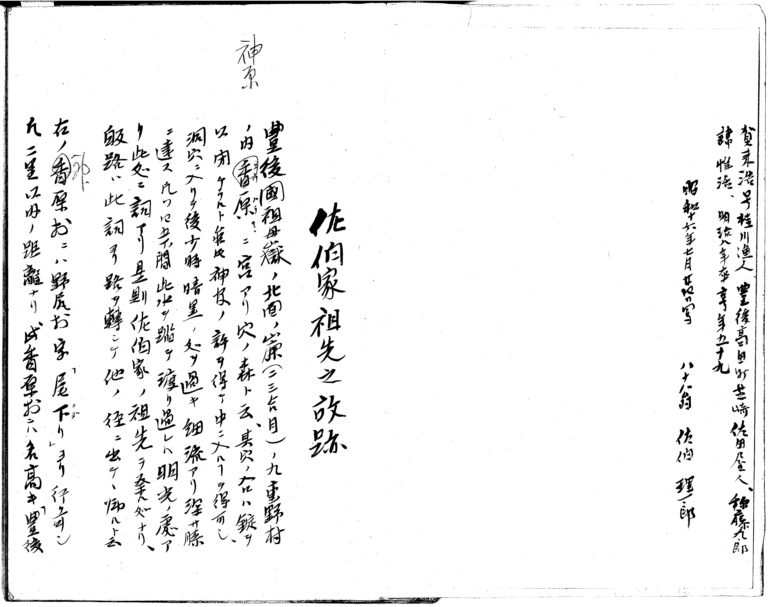 貧来浩号桂川漁人 豊後高田町芝崎佐田屋人、称藤九郎
諱惟浩、明治八年卒享年五十九
昭和十六年七月廿四日写 八十八翁 佐伯理一郎
佐伯家祖先之故跡
豊後國祖母嶽ノ北面ノ山麓(二三合目)ノ九重野村
ノ内香原ニ宮アリ穴ノ森ト云、其穴ノ入口ハ錠ヲ
以テ閉ケラルト雖此神技ノ許ヲ得テ中ニ入ルヲ得可シ、
洞穴ニ入リテ後少時暗黒ノ処ヲ過キ細流アリ深サ膝
ニ達ス凡ソ二三十間此水ヲ踏ミ渡リ過レハ明光ノ處ア
リ此処ニ祠アリ是則佐伯家ノ祖先ヲ祭ル処ナリ、
皈路ハ此祠ヨリ路ヲ轉シテ他ノ径ニ出テヽ帰ルト云
右ノ香原村ニハ野尻村字「尾下リ」ヨリ行ク可シ
凡二里以内ノ距離ナリ、此香原村ニハ名高キ「豊後
神原